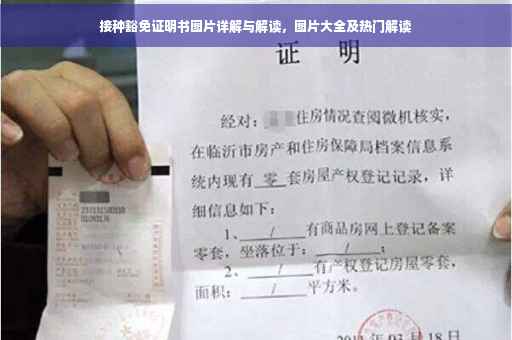 接种豁免证明书图片详解与解读，图片大全及热门解读
证 明
经对：住房情况查阅微机核实，
在临沂市房产和住房保障局档案信息系
统内现有 零 套房屋产权登记记录，详
细信息如下：
1、 / 有商品房网上登记备案
零套，坐落位于： / ；
2、 / 有产权登记房屋零套，
面积： / 平方米。
03月18日